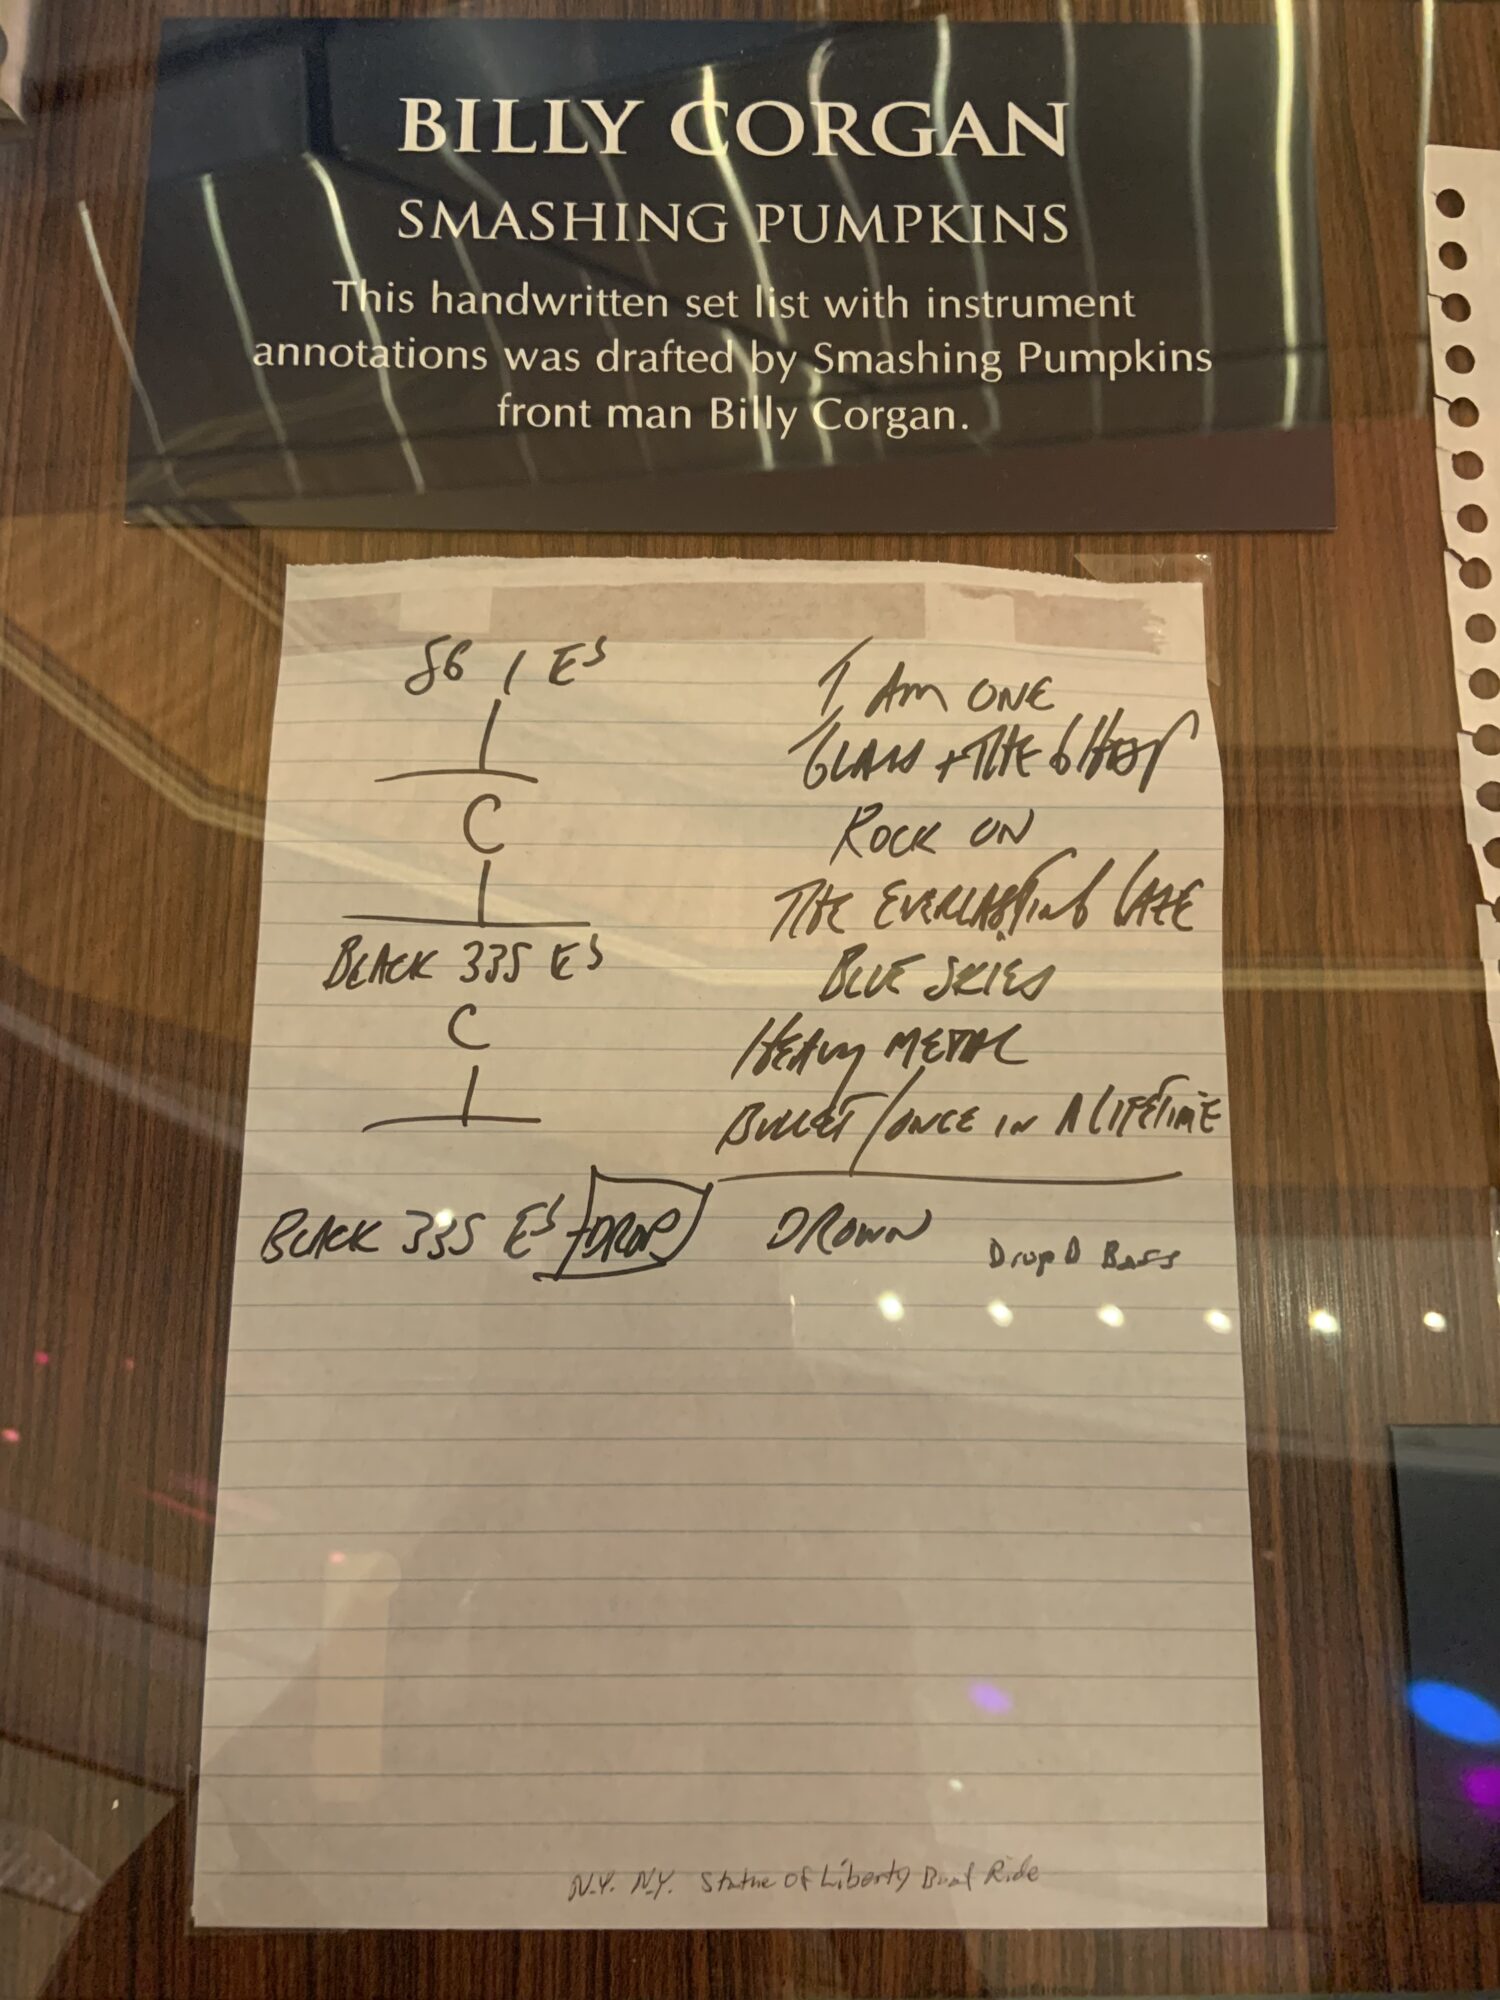 BILLY CORGAN
SMASHING PUMPKINS
This handwritten set list with instrument
annotations was drafted by Smashing Pumpkins
front man Billy Corgan.
SG / Es I AM ONE
GLASS + THE GHOST
C ROCK ON
THE EVERLASTING GAZE
BLACK 335 Es BLUE SKIES
C HEAVY METAL
BULLET / ONCE IN A LIFETIME
BLACK 335 Es + DROP DROWN Drop D Bass
N.Y. N.Y. Statue Of Liberty Boat Ride